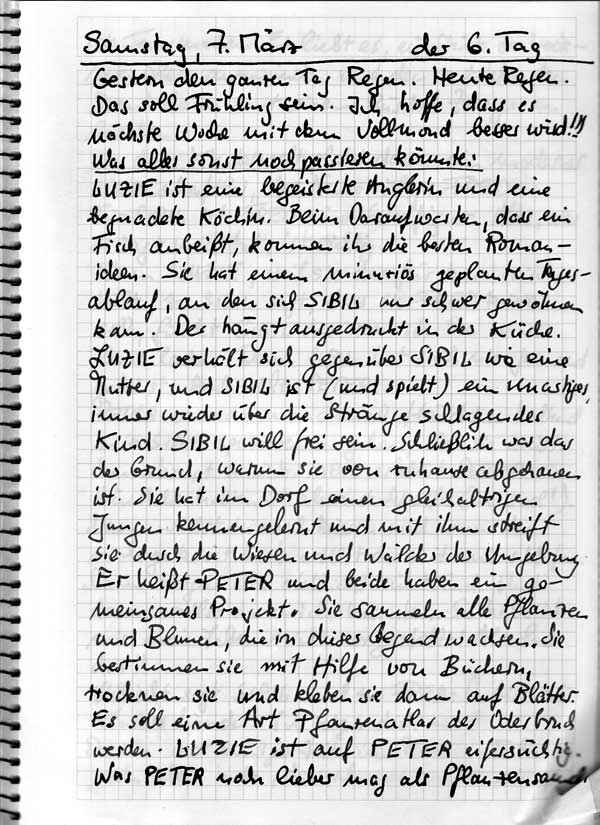 Samstag, 7. März der 6. Tag
Gestern den ganzen Tag Regen. Heute Regen.
Das soll Frühling sein. Ich hoffe, dass es
nächste Woche mit dem Vollmond besser wird!!)
Was alles sonst noch passieren könnte:
LUZIE ist eine begeisterte Anglerin und eine
begnadete Köchin. Beim Darauf warten, dass ein
Fisch anbeißt, kommen ihr die besten Roman-
ideen. Sie hat einem minutiös geplanten Tages-
ablauf, an den sich SIBIL nur schwer gewöhnen
kann. Der hängt ausgedruckt in der Küche.
LUZIE verhält sich gegenüber SIBIL wie eine
Mutter, und SIBIL ist (und spielt) ein unartiges,
immer wieder über die Stränge schlagendes
Kind. SIBIL will frei sein. Schließlich war das
der Grund, warum sie von zuhause abgehauen
ist. Sie hat im Dorf einen gleichaltrigen
Jungen kennengelernt und mit ihm streift
sie durch die Wiesen und Wälder der Umgebung.
Er heißt PETER und beide haben ein ge-
meinsames Projekt. Sie sammeln alle Pflanzen
und Blumen, die in dieser Gegend wachsen. Sie
bestimmen sie mit Hilfe von Büchern,
trocknen sie und kleben sie dann auf Blätter.
Es soll eine Art Pflanzenatlas des Oderbruch
werden. LUZIE ist auf PETER eifersüchtig.
Was PETER noch lieber mag als Pflanzen